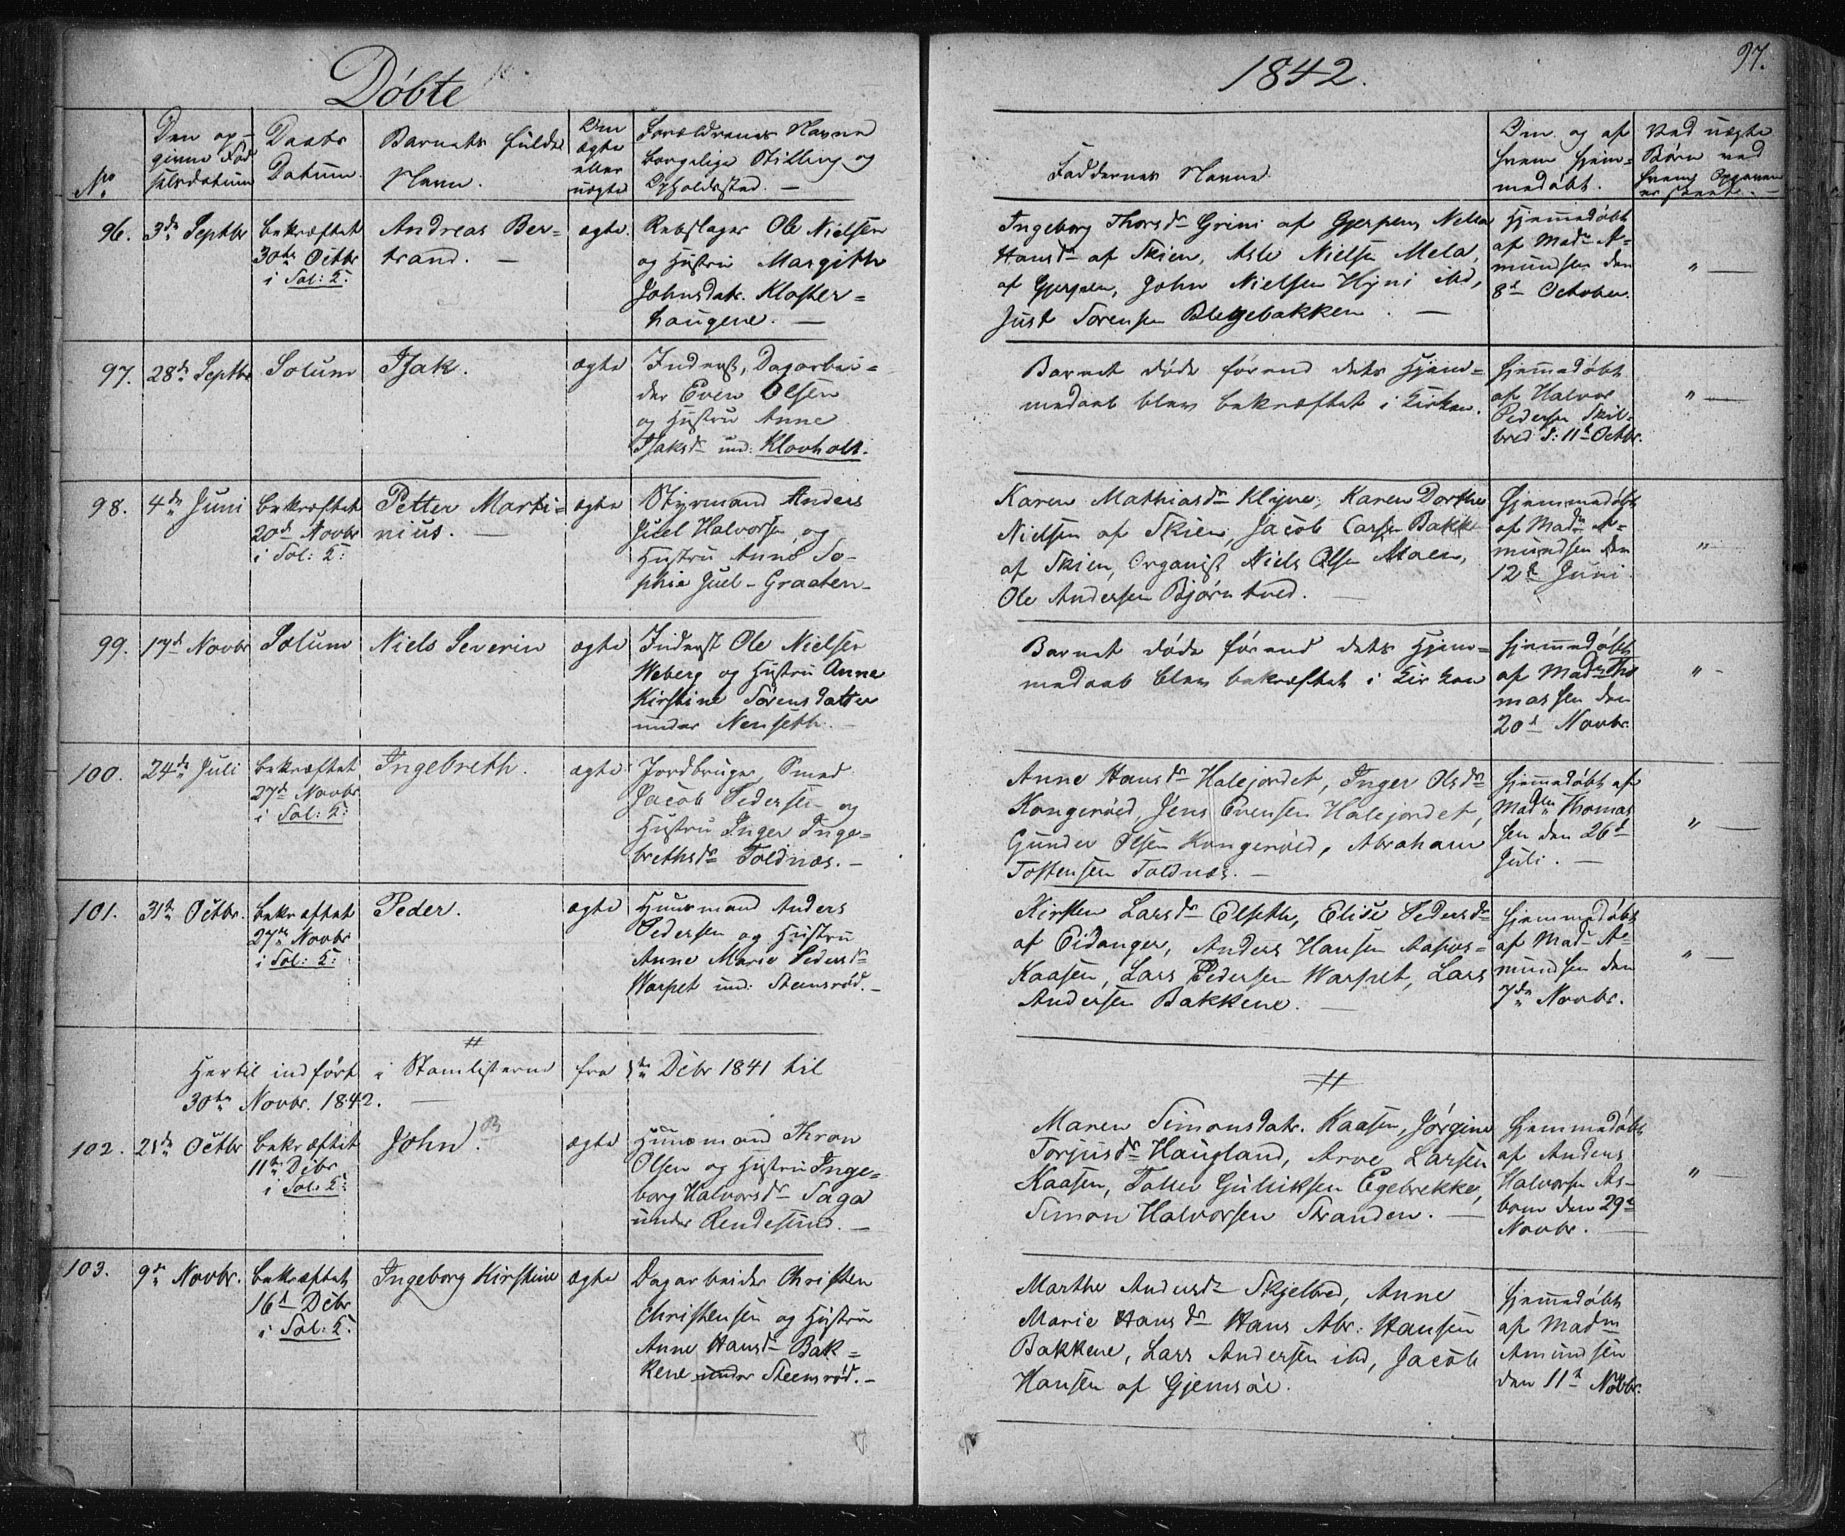 Døbte
1842.
97.
No
Den op-
givne Fød-
selsdatum
Daabs
Datum.
Barnets fulde
Navn.
Om
ægte
eller
uægte
Forældrenes Navne
borgelige Stilling og
Opholdssted. —
Faddernes Navne.
Om og af
hvem hjem-
medøbt.
Ved uægte
Børn ved
hvem Opgaven
er skeet. —
96.
3de Septbr
bekræftet
30te Octbr
i Sol: K:
Andreas Ber-
trand. —
ægte.
Rebslager Ole Nielsen
og Hustru Margith
Johnsdatr. Kloster-
hougene. —
Ingeborg Thorsdr Grini af Gjerpen, Nella
Hansdr af Skien, Asle Nielsen Mela,
af Gjerpen, John Nielsen Hyni ibd,
Just Sørensen Blegebakken. —
Hjemmedøbt
af Madm A-
mundsen den
8d October.
" —
97.
28de Septbr
Solum
Isak.
ægte
Inderst, Dagarbei-
der Even Olsen
og Hustru Anne
Isaksdr und. Klovholt.
Barnet døde førend dets Hjem-
medaab blev bekræftet i Kirken.
hjemmedøbt
af Halvor
Pedersen Skil-
bred d: 11t Octbr.
" —
98.
4de Juni
bekræftet
20d Novbr
i Sol: K:
Petter Marti-
nius. —
ægte
Styrmand Anders
Juel Halvorsen og
Hustru Anne So-
phie Juel - Graaten-
Karen Mathiasdr Klyve, Karen Dorthe
Nielsen af Skien, Jacob Carsen Bakke
af Skien, Organist Niels Olsen Moen,
Ole Andersen Bjørntved. —
Hjemmedøbt
af Madm A-
mundsen den
12t Juni.
" —
99.
17d Novbr
Solum
Niels Severin
ægte
Inderst Ole Nielsen
Weberg og Hustru Anne
Kirstine Sørensdatter
under Nenseth. —
Barnet døde førend dets Hjem-
medaab blev bekræftet i Kirken
hjemmedøbt
af Madm Tho
massen den
20d Novbr.
" —
100.
24de Juli
bekræftet
27d Novbr
i Sol: K:
Ingebreth.
ægte
Jordbruger, Smed
Jacob Pedersen og
Hustru Inger Inge-
brethsdr Toldnæs. —
Anne Hansdr Halejordet, Inger Olsdr
Kongerød, Jens Evensen Halejordet,
Gunder Olsen Kongerød, Abraham
Tostensen Toldnæs. —
hjemmedøbt af
Madm Thomas
sen den 26d
Juli. —
" —
101.
31te Octbr.
bekræftet
27de Novbr
i Sol: K:
Peder.
ægte
Huusmand Anders
Pedersen og Hustru
Anne Marie Pedersdr
Warpet und: Steensrød. —
Kirsten Larsdr Elseth, Elise Pedersdr
af Eidanger, Anders Hansen Aasves-
Kaasen, Lars Pedersen Warpet, Lars
Andersen Bakkene. —
hjemmedøbt
af Madm A-
mundsen den
7de Novbr.
" —
#
Hertil indført i Stamlisterne fra 1te Debr 1841 til
30te Novbr. 1842. —
#
102.
21de Octbr
bekræftet
11te Debr
i Sol: K:
John.
ægte
Huusmand Thron
Olsen og Hustru Inge-
borg Halvorsdr Saga
under Rendesund. —
Maren Simonsdatr. Kaasen, Jørgine
Torjusdr Haugland, Arve Larsen
Kaasen, Tollev Gulliksen Egebrekke,
Simon Halvorsen Stranden. —
hjemmedøbt
af Anders
Halvorsen As-
bom den 29d
Novbr. —
" —
103.
9de Novbr.
bekræftet
16d Debr
i Sol: K:
Ingeborg Kirstine
ægte
Dagarbeider Christen
Christensen og Hustru
Anne Hansdr Bak-
kene under Steensrød. —
Marthe Andersdr Skjelbred, Anne
Marie Hansdr Hans Abr: Hansen
Bakkene, Lars Andersen ibd, Jacob
Hansen af Gjemsøe.
hjemmedøbt
af Madm
Amundsen
den 11t Novbr.